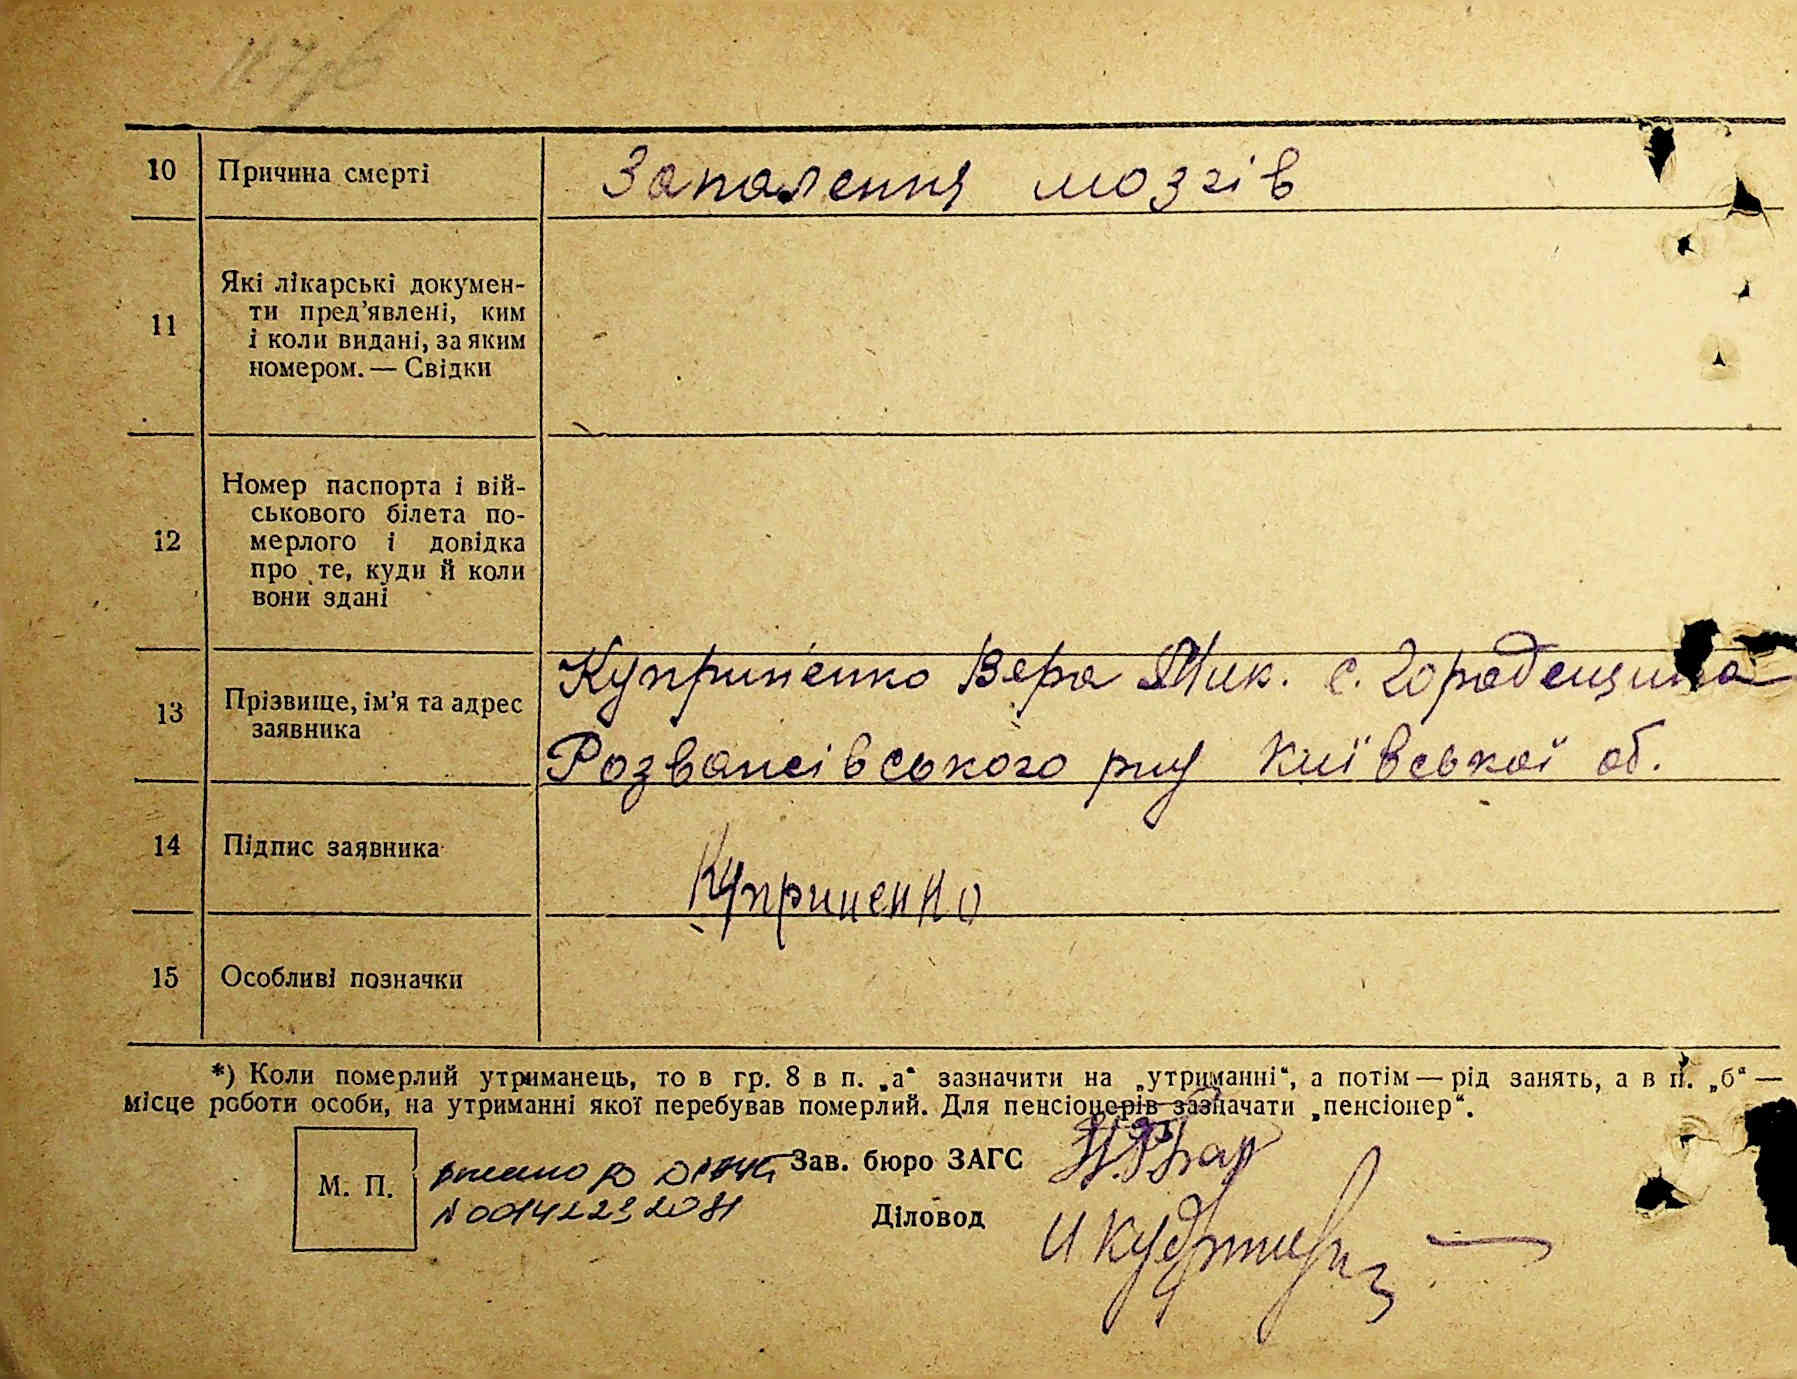 10 Причина смерті Запалення мозгів
11 Які лікарські докумен-
ти пред'явлені, ким
і коли видані, за яким
номером. — Свідки
12 Номер паспорта і вій-
ськового білета по-
мерлого і довідка
про те, куди й коли
вони здані
13 Прізвище, ім'я та адрес
заявника
Куприпенко Вера Мик. с. Городещина
Розважівського р-ну Київської об.
14 Підпис заявника
Куприпенко
15 Особливі позначки
*) Коли померлий утриманець, то в гр. 8 в п. „а“ зазначити на „утриманні“, а потім — рід занять, а в п. „б“ —
місце роботи особи, на утриманні якої перебував померлий. Для пенсіонерів зазначати „пенсіонер“.
М. П.
Зав. бюро ЗАГС
N 00142232081
Діловод